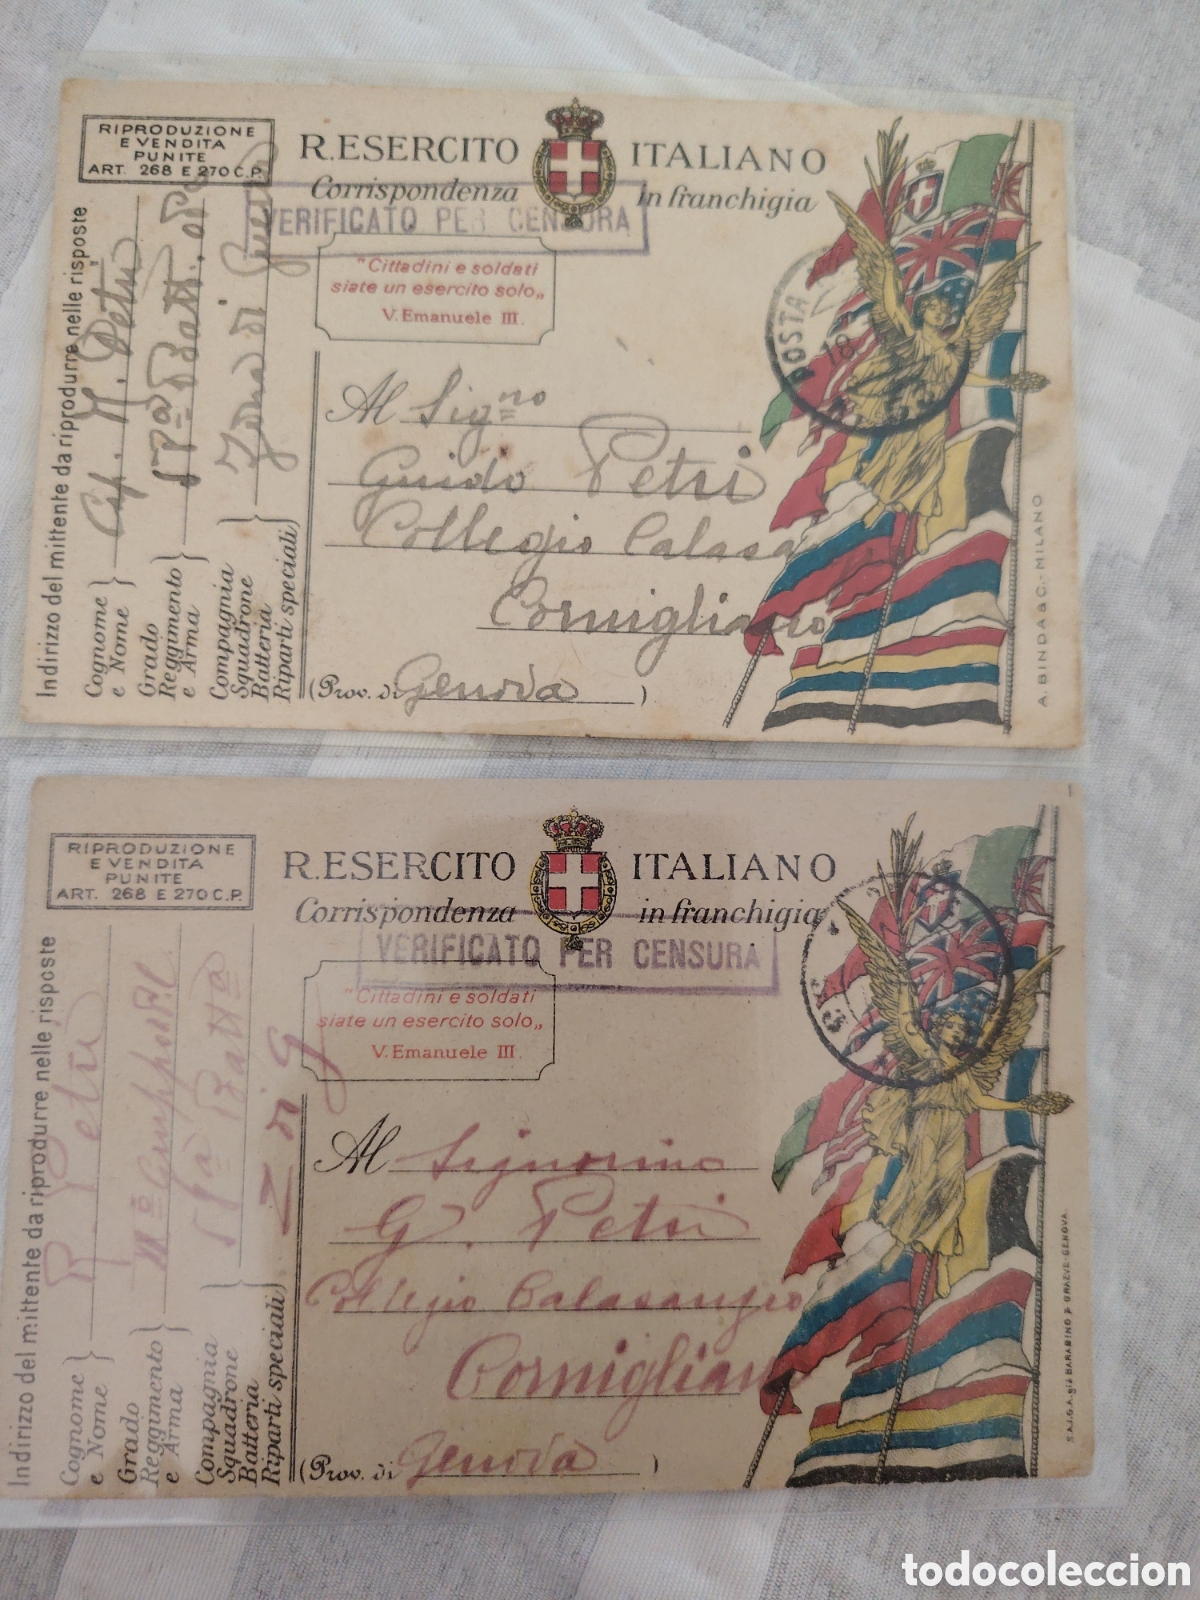 RIPRODUZIONE
E VENDITA
PUNITE
ART. 268 E 270 C.P.
R. ESERCITO ITALIANO
Corrispondenza in franchigia
VERIFICATO PER CENSURA
"Cittadini e soldati
siate un esercito solo„
V. Emanuele III.
Indirizzo del mittente da riprodurre nelle risposte
Cognome e Nome } Petri
Grado Reggimento e Arma } Batt.
Compagnia Squadrone Batteria Riparti speciali } Zona di Guerra
POSTA
18
Al Sig.no
Guido Petri
Collegio Calasa
Cornigliano
(Prov. di Genova)
A. BINDA & C. - MILANO
RIPRODUZIONE
E VENDITA
PUNITE
ART. 268 E 270 C.P.
R. ESERCITO ITALIANO
Corrispondenza in franchigia
VERIFICATO PER CENSURA
"Cittadini e soldati
siate un esercito solo„
V. Emanuele III.
Indirizzo del mittente da riprodurre nelle risposte
Cognome e Nome } Petri
Grado Reggimento e Arma }
Compagnia Squadrone Batteria Riparti speciali } Z di g
Al Signorino
G. Petri
Collegio Calasanzio
Cornigliano
(Prov. di Genova)
S.A.I.G.A. già BARABINO & GRAEVE-GENOVA
todocoleccion